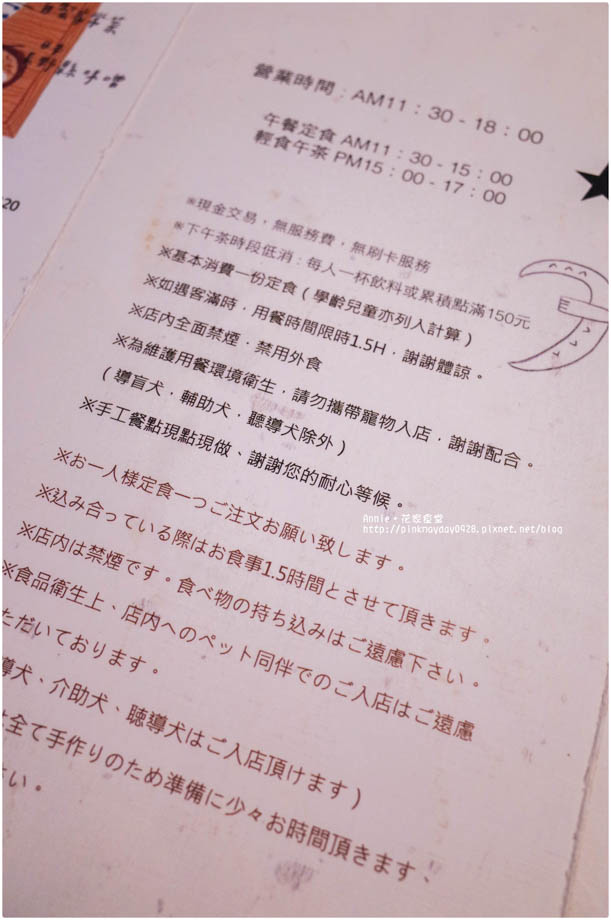 味噌
20
營業時間：AM11：30 - 18：00
午餐定食 AM11：30 - 15：00
輕食午茶 PM15：00 - 17：00
※現金交易，無服務費，無刷卡服務
※下午茶時段低消：每人一杯飲料或累積點滿150元
※基本消費一份定食（學齡兒童亦列入計算）
※如遇客滿時，用餐時間限時1.5H，謝謝體諒。
※店內全面禁煙，禁用外食
※為維護用餐環境衛生，請勿攜帶寵物入店，謝謝配合。
（導盲犬，輔助犬，聽導犬除外）
※手工餐點現點現做、謝謝您的耐心等候。
※お一人様定食一つご注文お願い致します。
※込み合っている際はお食事1.5時間とさせて頂きます。
※店内は禁煙です。食べ物の持ち込みはご遠慮下さい。
※食品衛生上、店内へのペット同伴でのご入店はご遠慮
ただいております。
導犬、介助犬、聴導犬はご入店頂けます）
全て手作りのため準備に少々お時間頂きます、
さい。
Annie。花妮痞堂
http://pinkmayday0428.pixnet.net/blog